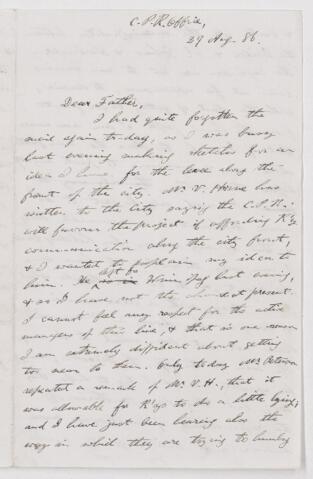 C.P.R. Office,
29 Aug. 86.
Dear Father,
I had quite forgotten the
mail again to-day, as I was busy
last evening making sketches for an
idea I have for the levee along the
front of the city. Mr V. Horne has
written to the City saying the C.P.R.
will favour the project of affording R'y
communication along the city front,
& I wanted to explain my idea to
him. He left for Winnipeg last evening,
& so I have not the chance at present.
I cannot feel any respect for the active
managers of this line, & that is one reason
I am extremely diffident about getting
too near to them. Only to-day Mr Peterson
repeated a remark of Mr V. H., that it
was allowable for R'ys to do a little lying,
and I have just been hearing also the
way in which they are trying to humbug